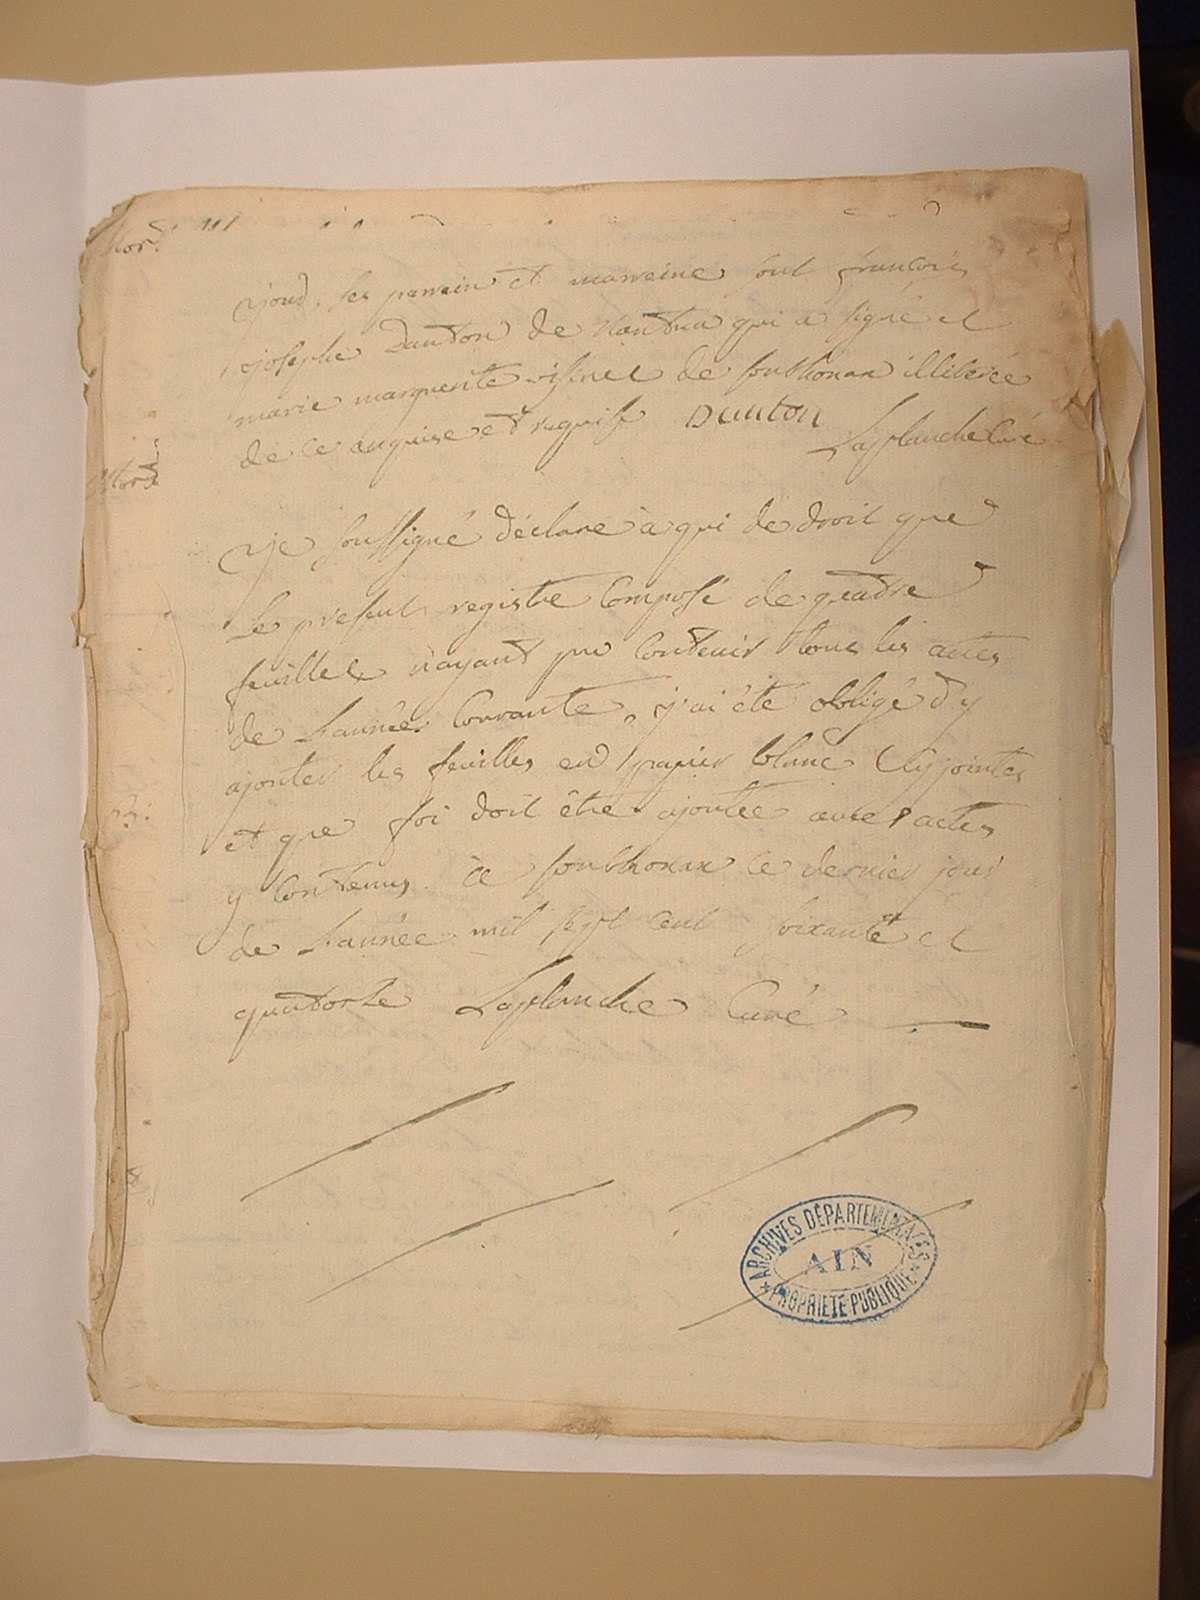 ajoud. ses parrain et marreine sont francois
joseph Dunton de Nantua qui a signé et
marie marguerite de Sonthonax illiterée
de ce enquise et requise Dunton
Laplanche Curé
je soussigné déclare à qui de droit que
le present registre Composé de quatre
feuilles n'ayant pu Contenir tous les actes
de L'année Courante, j'ai été obligé d'y
ajouter les feuilles en papier blanc Cy jointes
et que foi doit être ajoutée aux actes
y Contenus. à Sonthonax ce dernier jour
de L'année mil sept cent soixante et
quatorze Laplanche Curé
ARCHIVES DÉPARTEMENTALES
AIN
PROPRIETE PUBLIQUE